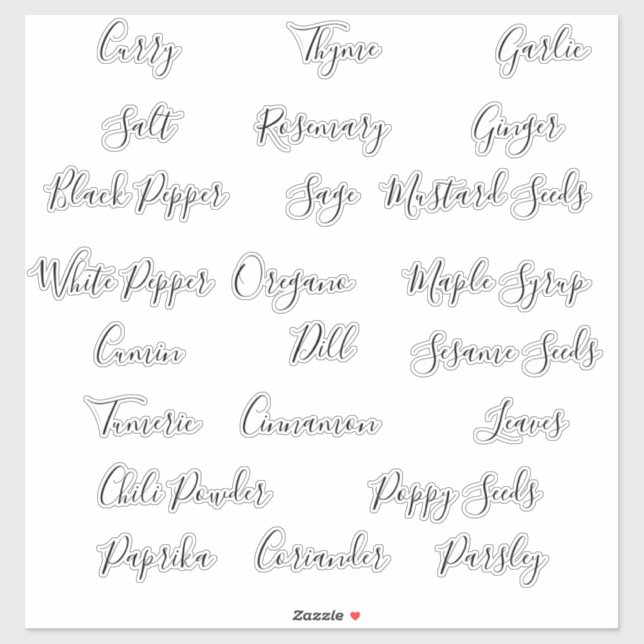 Curry Thyme Garlic
Salt Rosemary Ginger
Black Pepper Sage Mustard Seeds
White Pepper Oregano Maple Syrup
Cumin Dill Sesame Seeds
Tumeric Cinnamon Leaves
Chili Powder Poppy Seeds
Paprika Coriander Parsley
Zazzle